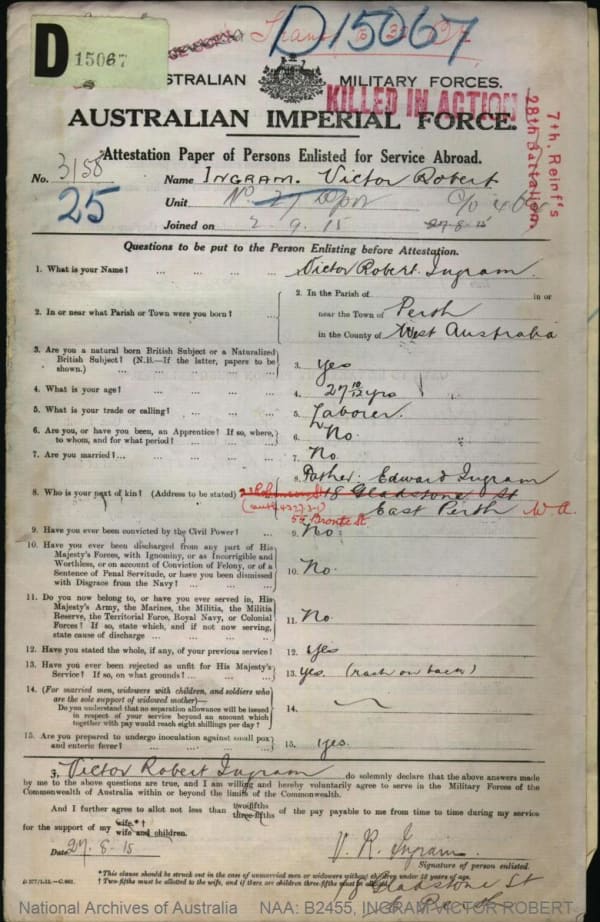 D 15067
D15067
AUSTRALIAN MILITARY FORCES.
KILLED IN ACTION
AUSTRALIAN IMPERIAL FORCE.
7th. Reinf's
28th Battalion.
Attestation Paper of Persons Enlisted for Service Abroad.
No. 3158 Name INGRAM. Victor Robert
25
Unit
Joined on 2 9. 15 27-8-15
Questions to be put to the Person Enlisting before Attestation.
1. What is your Name? ... Victor Robert Ingram.
2. In or near what Parish or Town were you born? ... 2. In the Parish of in or
near the Town of Perth
in the County of West Australia
3. Are you a natural born British Subject or a Naturalized
British Subject? (N.B.—If the latter, papers to be
shown.) ... 3. Yes
4. What is your age? ... 4. 27 10/12 yrs
5. What is your trade or calling? ... 5. Laborer.
6. Are you, or have you been, an Apprentice? If so, where,
to whom, and for what period? ... 6. No.
7. Are you married? ... 7. No.
8. Father: Edward Ingram
8. Who is your next of kin? (Address to be stated) 18 Gladstone St
East Perth W.A.
55 Bronte St
9. Have you ever been convicted by the Civil Power? ... 9. No.
10. Have you ever been discharged from any part of His
Majesty's Forces, with Ignominy, or as Incorrigible and
Worthless, or on account of Conviction of Felony, or of a
Sentence of Penal Servitude, or have you been dismissed
with Disgrace from the Navy? ... 10. No.
11. Do you now belong to, or have you ever served in, His
Majesty's Army, the Marines, the Militia, the Militia
Reserve, the Territorial Force, Royal Navy, or Colonial
Forces? If so, state which, and if not now serving,
state cause of discharge ... 11. No.
12. Have you stated the whole, if any, of your previous service? 12. yes
13. Have you ever been rejected as unfit for His Majesty's
Service? If so, on what grounds? ... 13. yes. on back)
14. (For married men, widowers with children, and soldiers who
are the sole support of widowed mother)—
Do you understand that no separation allowance will be issued
in respect of your service beyond an amount which
together with pay would reach eight shillings per day? 14.
15. Are you prepared to undergo inoculation against small pox
and enteric fever? ... 15. yes.
I, Victor Robert Ingram do solemnly declare that the above answers made
by me to the above questions are true, and I am willing and hereby voluntarily agree to serve in the Military Forces of the
Commonwealth of Australia within or beyond the limits of the Commonwealth.
And I further agree to allot not less than two-fifths three-fifths of the pay payable to me from time to time during my service
for the support of my wife.*† wife and children.
Date 27. 8. 15 V. R. Ingram.
Signature of person enlisted.
*This clause should be struck out in the case of unmarried men or widowers without children under 18 years of age.
† Two-fifths must be allotted to the wife, and if there are children three-fifths must be
18 Gladstone St
E. Perth
National Archives of Australia NAA: B2455, INGRAM VICTOR ROBERT